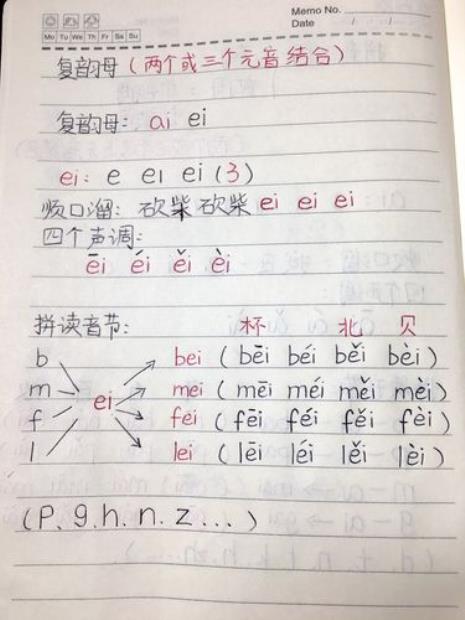 Memo No.
Date / /
Mo Tu We Th Fr Sa Su
复韵母（两个或三个元音结合）
复韵母: ai ei
ei: e eı ei (3)
顺口溜: 砍柴砍柴 ei ei ei
四个声调:
ēi éi ěi èi
拼读音节: 杯 北 贝
b bei ( bēi béi běi bèi )
m mei ( mēi méi měi mèi )
ei
f fei ( fēi féi fěi fèi )
l lei ( lēi léi lěi lèi )
(P. g. h. n. z ... )